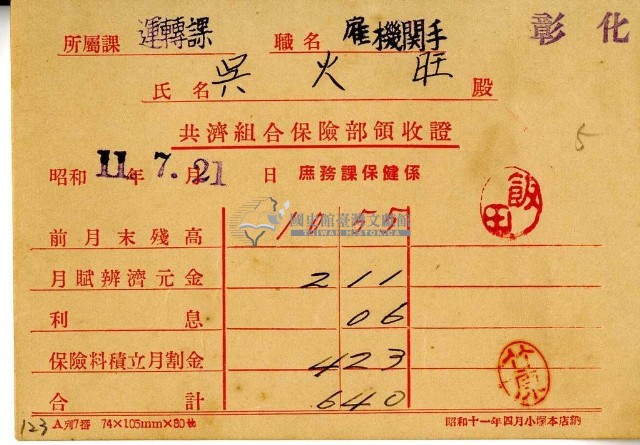 所屬課 運轉課 職名 雇機関手 彰化
氏名 吳火旺 殿
共濟組合保險部領收證
5
昭和 11年 7.月 21日 庶務課保健係
飯田
國史館臺灣文獻館
TAIWAN HISTORICA
前月末殘高 10 55
月賦辨濟元金 2 11
利息 06
保險料積立月割金 4 23
竹原
合計 6 40
123 A列7番 74×105mm×80 昭和十一年四月小塚本店納